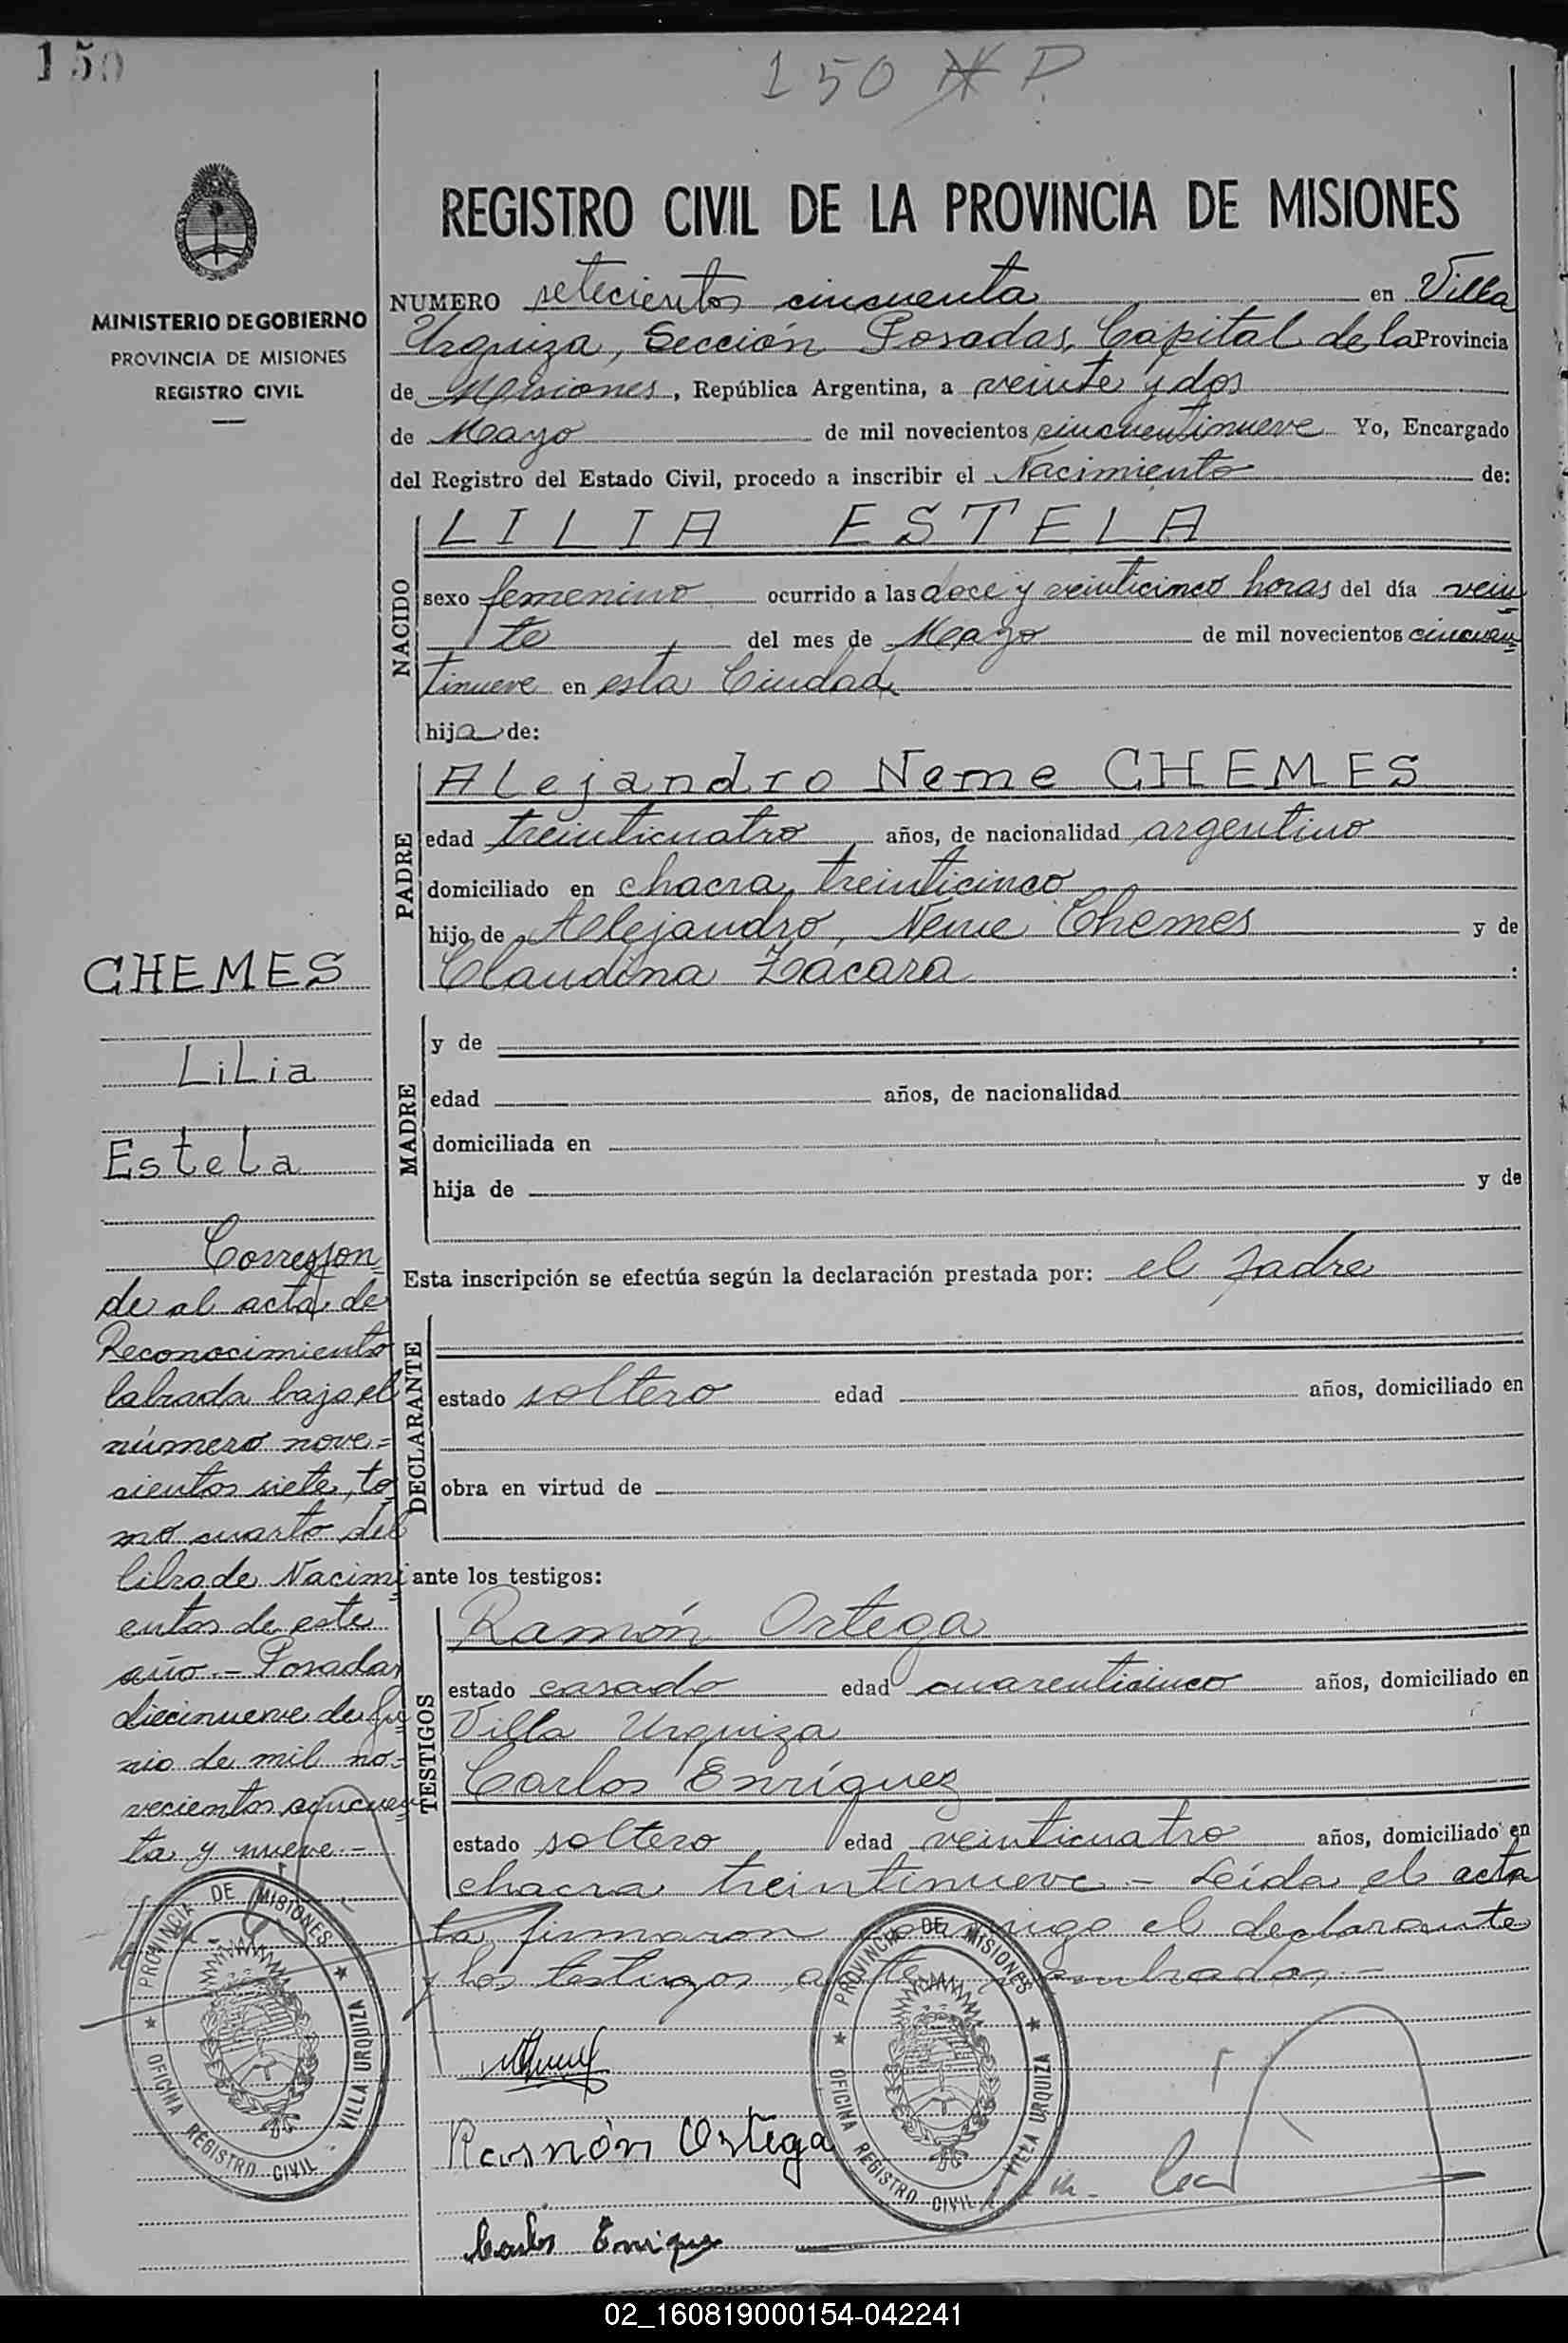 150
150 P.
MINISTERIO DE GOBIERNO
PROVINCIA DE MISIONES
REGISTRO CIVIL
CHEMES
Lilia
Estela
Correspon=
de al acta de
Reconocimiento
labrada bajo el
número nove=
cientos siete, to=
mo cuarto del
libro de Nacimi=
entos de este
año.- Posadas,
diecinueve de Ju=
nio de mil no=
vecientos cincuen=
ta y nueve.-
PROVINCIA DE MISIONES
OFICINA REGISTRO CIVIL
VILLA URQUIZA
REGISTRO CIVIL DE LA PROVINCIA DE MISIONES
NUMERO setecientos cincuenta en Villa
Urquiza, Sección Posadas, Capital de la Provincia
de Misiones, República Argentina, a veinte y dos
de Mayo de mil novecientos cincuentinueve Yo, Encargado
del Registro del Estado Civil, procedo a inscribir el Nacimiento de:
NACIDO
LILIA ESTELA
sexo femenino ocurrido a las doce y veinticinco horas del día vein=
te del mes de Mayo de mil novecientos cincuen=
tinueve en esta Ciudad
hija de:
PADRE
Alejandro Neme CHEMES
edad treinticuatro años, de nacionalidad argentino
domiciliado en chacra treinticinco
hijo de Alejandro Neme Chemes y de
Claudina Zacara :
MADRE
y de
edad años, de nacionalidad
domiciliada en
hija de y de
Esta inscripción se efectúa según la declaración prestada por: el padre
DECLARANTE
estado soltero edad años, domiciliado en
obra en virtud de
ante los testigos:
TESTIGOS
Ramón Ortega
estado casado edad cuarenticinco años, domiciliado en
Villa Urquiza
Carlos Enríquez
estado soltero edad veinticuatro años, domiciliado en
chacra treintinueve - Leída el acta
la firmaron conmigo el declarante
y los testigos nombrados.-
PROVINCIA DE MISIONES
OFICINA REGISTRO CIVIL
VILLA URQUIZA
Ramón Ortega
Carlos Enriquez
02_160819000154-042241